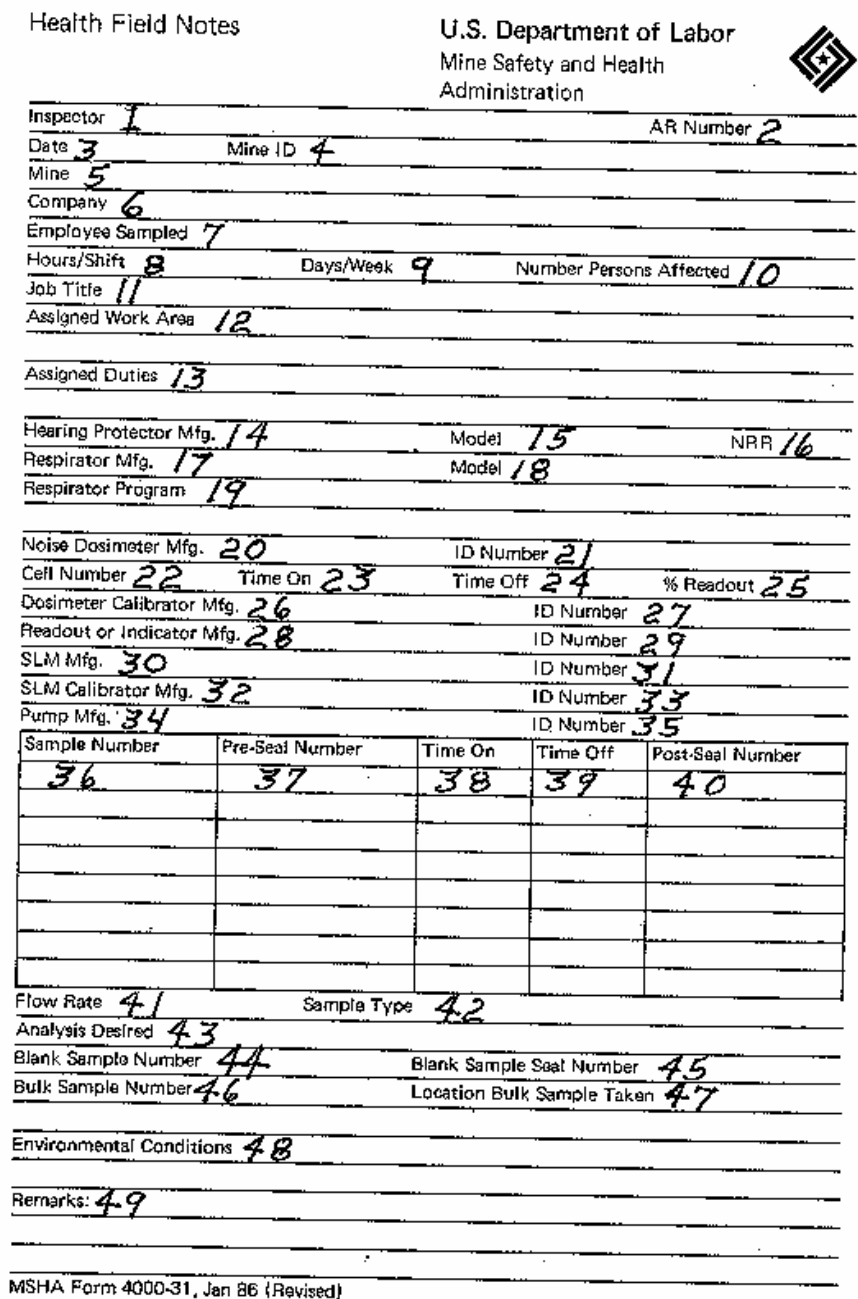 Health Field Notes
U.S. Department of Labor
Mine Safety and Health
Administration
Inspector 1 AR Number 2
Date 3 Mine ID 4
Mine 5
Company 6
Employee Sampled 7
Hours/Shift 8 Days/Week 9 Number Persons Affected 10
Job Title 11
Assigned Work Area 12
Assigned Duties 13
Hearing Protector Mfg. 14 Model 15 NRR 16
Respirator Mfg. 17 Model 18
Respirator Program 19
Noise Dosimeter Mfg. 20 ID Number 21
Cell Number 22 Time On 23 Time Off 24 % Readout 25
Dosimeter Calibrator Mfg. 26 ID Number 27
Readout or Indicator Mfg. 28 ID Number 29
SLM Mfg. 30 ID Number 31
SLM Calibrator Mfg. 32 ID Number 33
Pump Mfg. 34 ID Number 35
Sample Number Pre-Seal Number Time On Time Off Post-Seal Number
36 37 38 39 40
Flow Rate 41 Sample Type 42
Analysis Desired 43
Blank Sample Number 44 Blank Sample Seal Number 45
Bulk Sample Number 46 Location Bulk Sample Taken 47
Environmental Conditions 48
Remarks: 49
MSHA Form 4000-31, Jan 86 (Revised)